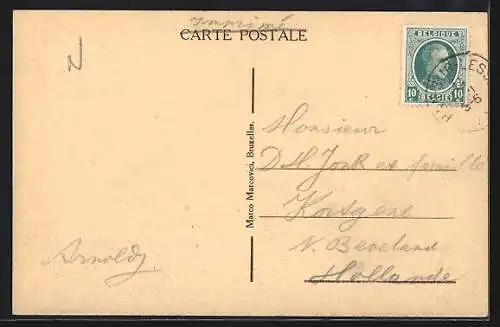 Imprimé
CARTE POSTALE
BELGIQUE
10 BELGIE 10
N
Monsieur
D.H. Jonk et famille
Kortgene
N. Beveland
Hollande
Arnoldy
Marco Marcovici, Bruxelles.